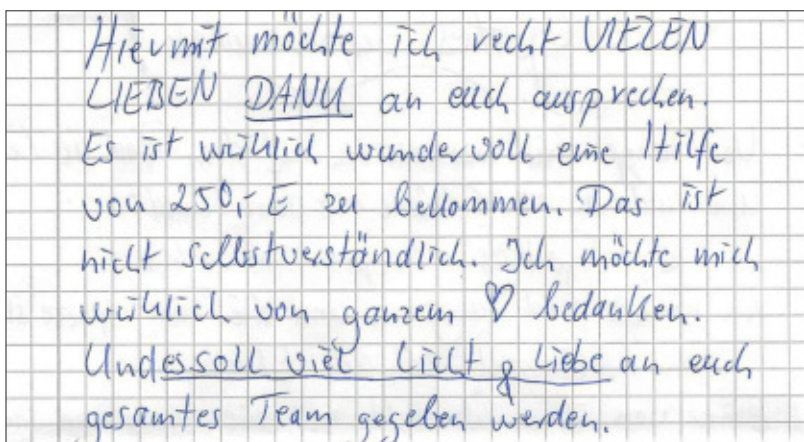 Hiermit möchte ich recht VIELEN
LIEBEN DANK an euch aussprechen.
Es ist wirklich wundervoll eine Hilfe
von 250,- E zu bekommen. Das ist
nicht selbstverständlich. Ich möchte mich
wirklich von ganzem ♡ bedanken.
Und es soll viel Licht & Liebe an euch
gesamtes Team gegeben werden.